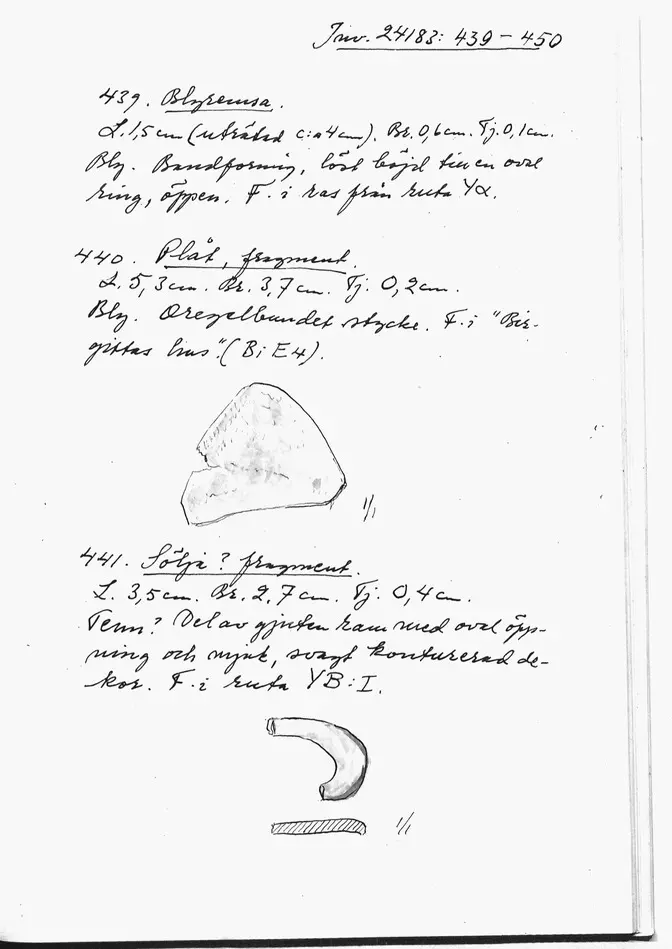 Inv. 24183: 439 – 450
439. Blyremsa.
L. 1,5 cm (uträtad c:a 4 cm). Br. 0,6 cm. Tj. 0,1 cm.
Bly. Bandformig, löst böjd till en oval
ring, öppen. F. i ras från ruta Yα.
440. Plåt, fragment.
L. 5,3 cm. Br. 3,7 cm. Tj. 0,2 cm.
Bly. Oregelbundet stycke. F. i "Bir-
gittas hus". (B i E4).
1/1
441. Sölja? fragment.
L. 3,5 cm. Br. 2,7 cm. Tj. 0,4 cm.
Tenn? Del av gjuten ram med oval öpp-
ning och mjuk, svagt konturerad de-
kor. F. i ruta YB:I.
1/1